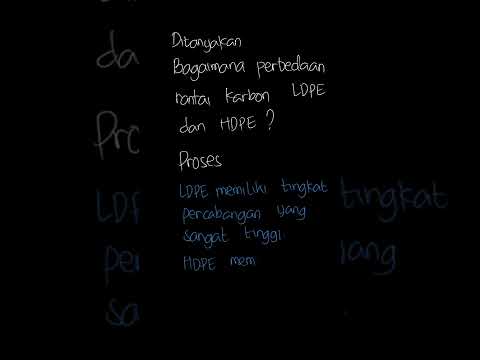 Ditanyakan
Bagaimana perbedaan
rantai karbon LDPE
dan HDPE ?
Proses
LDPE memiliki tingkat
percabangan yang
sangat tinggi.
HDPE mem